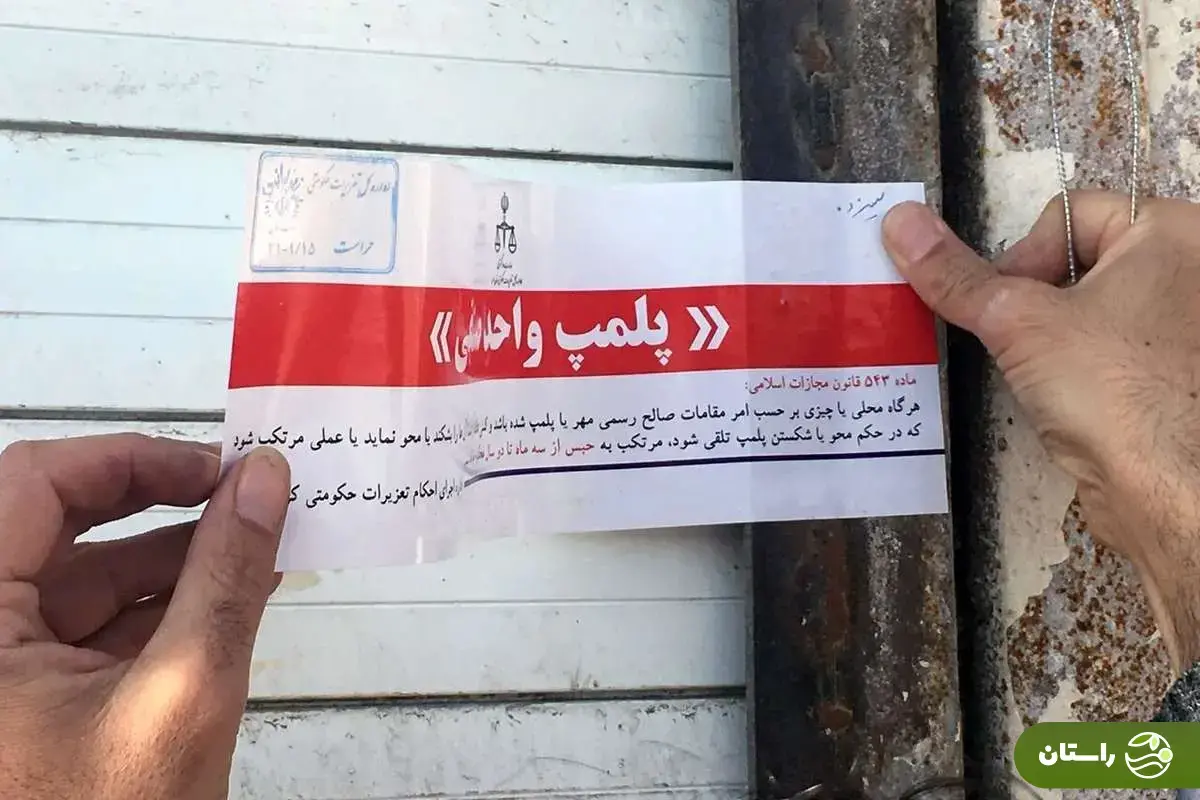 اداره کل تعزیرات حکومتی
حراست
« پلمپ واحد »
ماده ۵۴۳ قانون مجازات اسلامی:
هرگاه محلی یا چیزی بر حسب امر مقامات صالح رسمی مهر یا پلمپ شده باشد و بشکند یا محو نماید یا عملی مرتکب شود
که در حکم محو یا شکستن پلمپ تلقی شود، مرتکب به حبس از سه ماه تا دو سال
اجرای احکام تعزیرات حکومتی
راستان